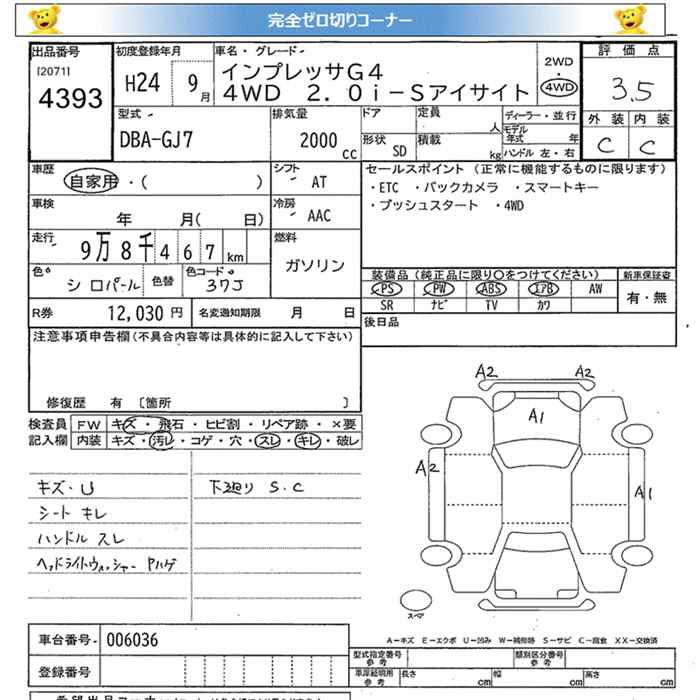 完全ゼロ切りコーナー
出品番号 初度登録年月 車名・グレード 評価点
[2071] H24 9月 インプレッサG4 2WD
4393 4WD 2.0i-Sアイサイト 4WD 3.5
型式 排気量 ドア 定員 人 ディーラー・並行 外装 内装
DBA-GJ7 2000cc 形状 SD 積載 kg モデル年式 年 C C
ハンドル 左・右
車歴 自家用・( ) シフト AT セールスポイント (正常に機能するものに限ります)
・ETC ・バックカメラ ・スマートキー
車検 年 月( 日) 冷房 AAC ・プッシュスタート ・4WD
走行 9万8千467km 燃料 ガソリン
色 シロパール 色替 色コード 37J 装備品(純正品に限り○をつけてください) 新車保証書
PS PW ABS エアB AW 有・無
SR ナビ TV カワ
R券 12,030円 名変通知期限 月 日 後日品
注意事項申告欄(不具合内容等は具体的に記入して下さい)
修復歴 有 [箇所 ]
検査員 FW キズ・飛石・ヒビ割・リペア跡・×要
記入欄 内装 キズ・汚レ・コゲ・穴・スレ・キレ・破レ
キズ・U 下廻り S.C
シート キレ
ハンドル スレ
ヘッドライトウォッシャー ハゲ
A2 A2
A1
A2
A1
スペア
A-キズ E-エクボ U-凹み W-補修跡 S-サビ C-腐食 XX-交換済
車台番号 006036 型式指定番号 参考 類別区分番号 参考
登録番号 車庫証明用 参考 長さ cm 幅 cm 高さ cm